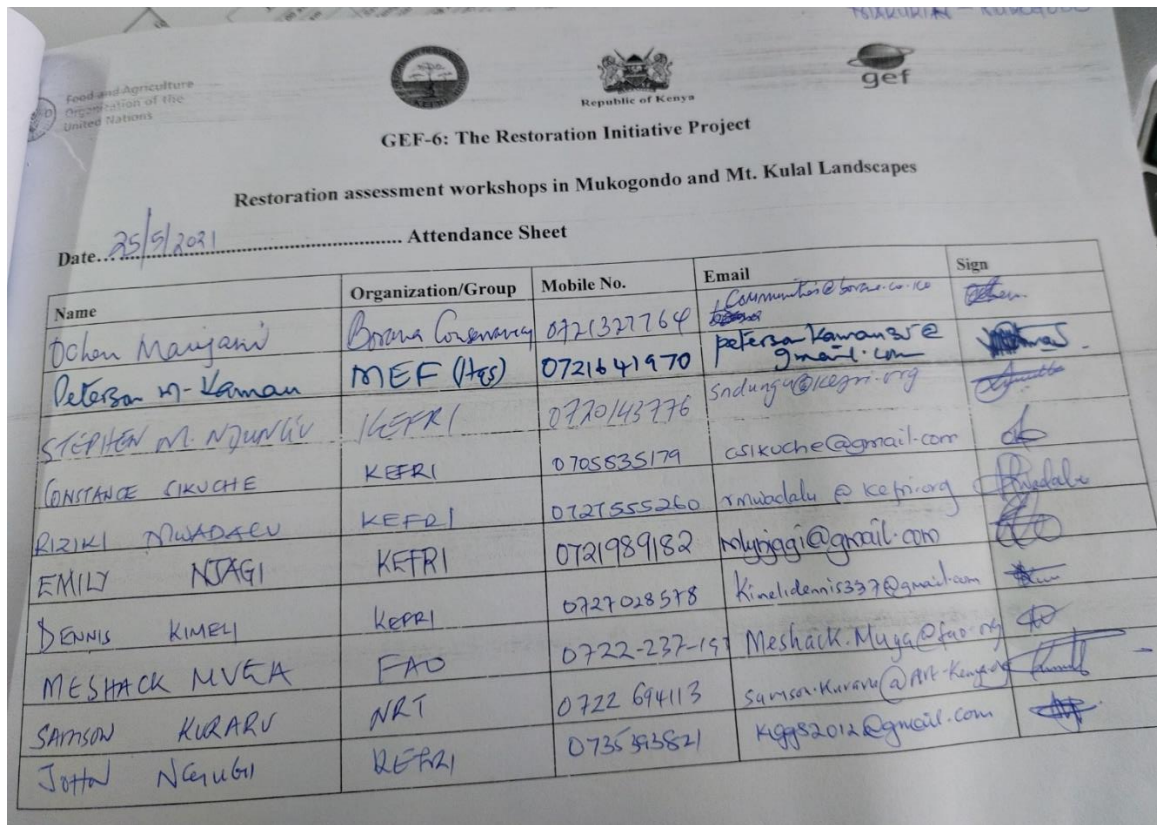 Food and Agriculture
Organization of the
United Nations
Republic of Kenya
gef
GEF-6: The Restoration Initiative Project
Restoration assessment workshops in Mukogondo and Mt. Kulal Landscapes
Date... 25/5/2021 ........ Attendance Sheet
Name Organization/Group Mobile No. Email Sign
Ochen Borana Conservancy 0721327764
Peterson M. Kamau MEF (Hqs) 0721641970 gmail.com
STEPHEN M. NDUNGU KEFRI 0720143776 sndungu@kefri.org
CONSTANCE SIKUCHE KEFRI 0705835179 csikuche@gmail.com
RIZIKI MWADALU KEFRI 0727555260 rmwadalu@kefri.org
EMILY NJAGI KEFRI 0721989182
DENNIS KIMELI KEFRI 0727028578 Kimelidennis337@gmail.com
MESHACK MUGA FAO Meshack.Muga@fao.org
SAMSON KURARU NRT 0722 694113
JOHN NGUGI KEFRI